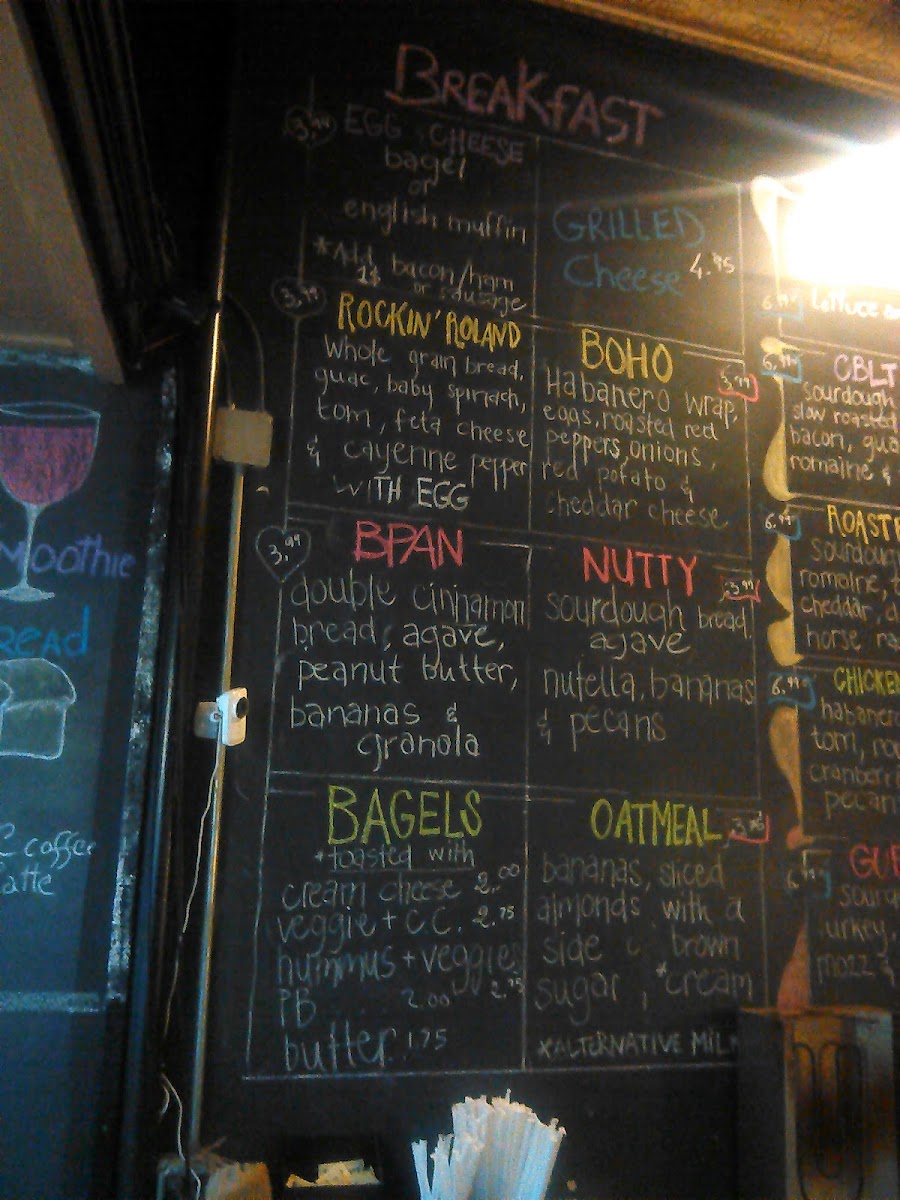 BREAKFAST
EGG & CHEESE
bagel
or
english muffin
*Add bacon/ham
1$ or sausage
GRILLED
Cheese 4.95
3.99
ROCKIN' ROLAND
Whole grain bread,
guac, baby spinach,
tom, feta cheese
& cayenne pepper
WITH EGG
BOHO
3.99
Habanero wrap,
eggs, roasted red
peppers, onions,
red potato &
cheddar cheese
3.99
BPAN
double cinnamon
bread, agave,
peanut butter,
bananas &
granola
NUTTY
3.99
sourdough bread,
agave
nutella, bananas
& pecans
BAGELS
*toasted with
cream cheese 2.00
veggie + C.C. 2.75
hummus + veggies
2.75
PB 2.00
butter 1.75
OATMEAL
bananas, sliced
almonds with a
side c brown
sugar, *cream
*ALTERNATIVE MILK
6.99
Lettuce
6.99
CBLT
sourdough
slow roasted
bacon, gua
romaine &
6.99
ROASTE
sourdoug
romaine, t
cheddar, d
horse ra
6.99
CHICKEN
habanero
tom, ro
cranberri
pecan
6.99
sourd
turkey,
mozz &
smoothie
READ
coffee
latte